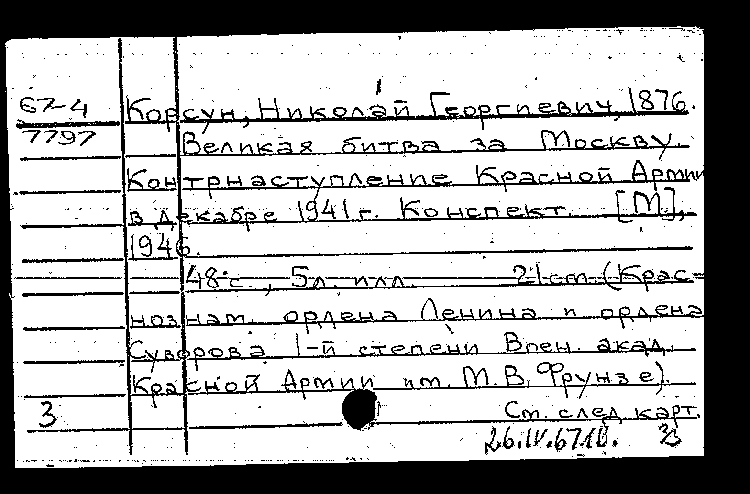 67-4 Корсун, Николай Георгиевич, 1876.
7797 Великая битва за Москву.
Контрнаступление Красной Армии
в декабре 1941 г. Конспект. [М.],
1946.
48 с., 5 л. илл. 21 см. (Крас-
нознам. ордена Ленина и ордена
Суворова 1-й степени Воен. акад.
Красной Армии им. М.В. Фрунзе).
3 См. след. карт.
26.IV.67